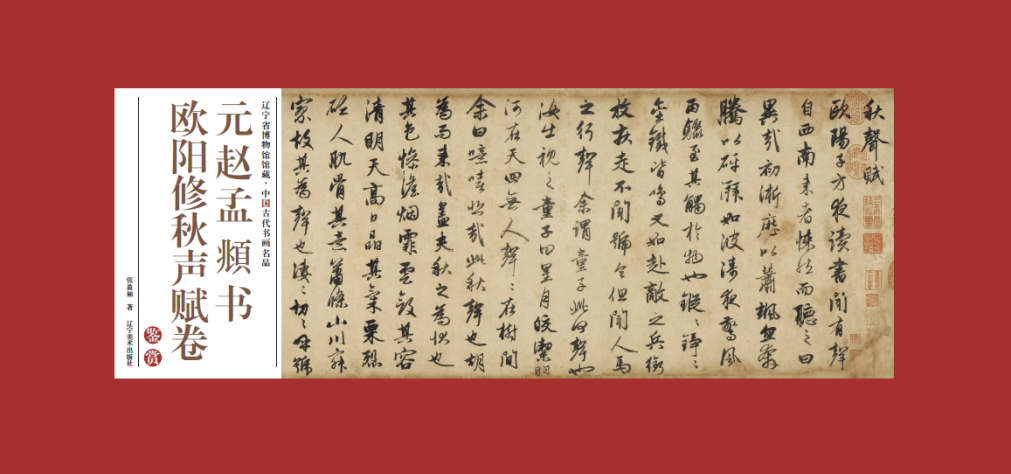 辽宁省博物馆馆藏·中国古代书画名品
元赵孟頫书
欧阳修秋声赋卷
鉴赏
张盈袖 著 辽宁美术出版社
秋聲賦
歐陽子方夜讀書聞有聲
自西南来者悚然而聽之曰
異哉初淅瀝以蕭颯忽奔
騰以砰湃如波濤夜驚風
雨驟至其觸於物也鏦〻錚〻
金鐵皆鳴又如赴敵之兵銜
枚疾走不聞號令但聞人馬
之行聲余謂童子此何聲也
汝出視之童子曰星月皎潔
河在天四無人聲〻在樹間
余曰噫嘻悲哉此秋聲也胡
為而来哉蓋夫秋之為状也
其色慘澹烟霏雲斂其容
清明天高日晶其氣栗冽
砭人肌骨其意蕭條山川寂
寥故其為聲也凄〻切〻呼號